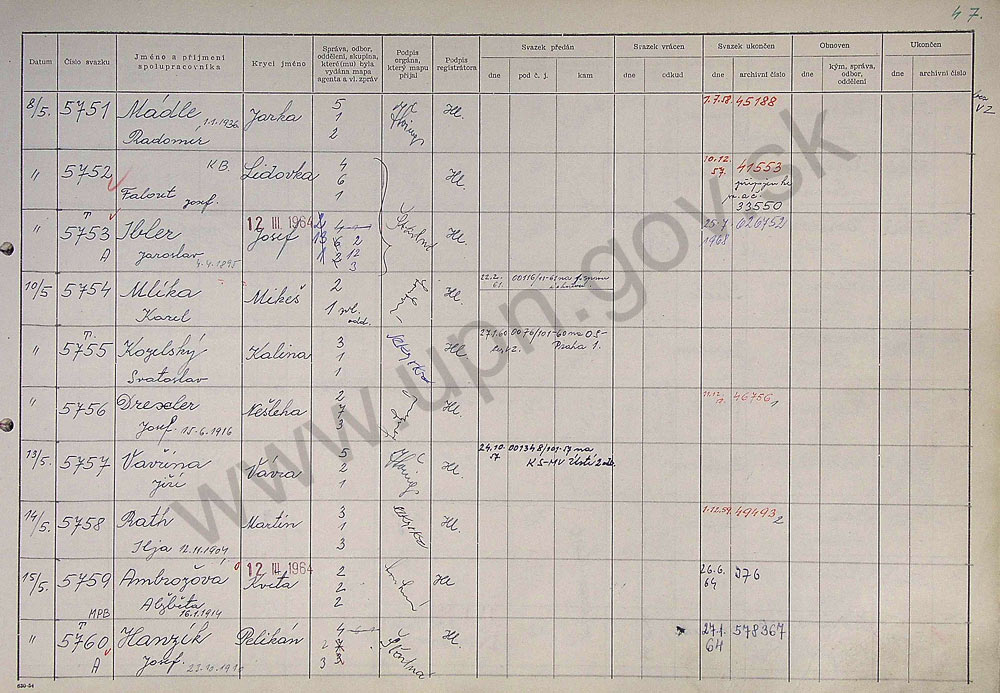 47.
Datum
Číslo svazku
Jméno a příjmení
spolupracovníka
Krycí jméno
Správa, odbor,
oddělení, skupina,
které(mu) byla
vydána mapa
agenta a vl. zpráv
Podpis
orgána,
který mapu
přijal
Podpis
registrátora
Svazek předán
dne
pod č. j.
kam
Svazek vrácen
dne
odkud
Svazek ukončen
dne
archivní číslo
Obnoven
dne
kým, správa,
odbor,
oddělení
Ukončen
dne
archivní číslo
8/5. 5751 Mádle 1.1.1936 Jarka 5 Hl. 1.7.58. 45188
Radomír 1
2
VZ
" 5752 KB. Lidovka 4 Hl. 10.12. 41553
Falout Josef. 6 57.
1 33550
" T 5753 Ibler 12 III. 1964 Josef 4 Hl. 25.7. 626752
A Jaroslav 4.4.1895 6 2 1968
2 12
3
10/5 5754 Mlíka Mikeš 2 Hl. 22.2.
Karel 1 61.
" T. 5755 Kozelský Kalina 3 Hl 27.1.60 0076/101-60 na OS-
Svatoslav 1 Praha 1.
1
" 5756 Drexler Nešleha 2 Hl. 11.12. 46756 1
Josef. 15.6.1916 7
3
13/5. 5757 Vavřina Vávra 5 Hl. 24.10. 001348/101-57 na
Jiří 2 57 KS-MV Ústí
1
14/5. 5758 Rath Martin 3 Hl. 1.12.59. 49493 2
Ilja 12.11.1904 1
3
15/5. 5759 Ambrožová 12 III. 1964 Květa 2 Hl 26.6. 376
MPB Alžběta 16.1.1914 2 64
2
" T 5760 Hanzík Pelikán 4 Hl. 27.1. 578367
A Josef. 2 64
3
www.upn.gov.sk